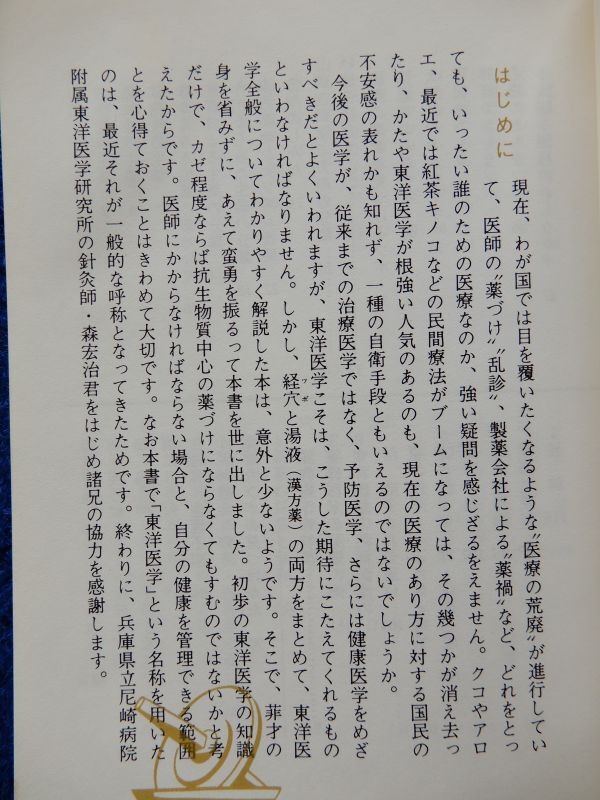 はじめに
現在、わが国では目を覆いたくなるような〝医療の荒廃〟が進行してい
て、医師の〝薬づけ〟〝乱診〟、製薬会社による〝薬禍〟など、どれをとっ
ても、いったい誰のための医療なのか、強い疑問を感じざるをえません。クコやアロ
エ、最近では紅茶キノコなどの民間療法がブームになっては、その幾つかが消え去っ
たり、かたや東洋医学が根強い人気のあるのも、現在の医療のあり方に対する国民の
不安感の表れかも知れず、一種の自衛手段ともいえるのではないでしょうか。
今後の医学が、従来までの治療医学ではなく、予防医学、さらには健康医学をめざ
すべきだとよくいわれますが、東洋医学こそは、こうした期待にこたえてくれるもの
といわなければなりません。しかし、経穴（ツボ）と湯液（漢方薬）の両方をまとめて、東洋医
学全般についてわかりやすく解説した本は、意外と少ないようです。そこで、菲才の
身を省みずに、あえて蛮勇を振るって本書を世に出しました。初歩の東洋医学の知識
だけで、カゼ程度ならば抗生物質中心の薬づけにならなくてもすむのではないかと考
えたからです。医師にかからなければならない場合と、自分の健康を管理できる範囲
とを心得ておくことはきわめて大切です。なお本書で「東洋医学」という名称を用いた
のは、最近それが一般的な呼称となってきたためです。終わりに、兵庫県立尼崎病院
附属東洋医学研究所の針灸師・森宏治君をはじめ諸兄の協力を感謝します。